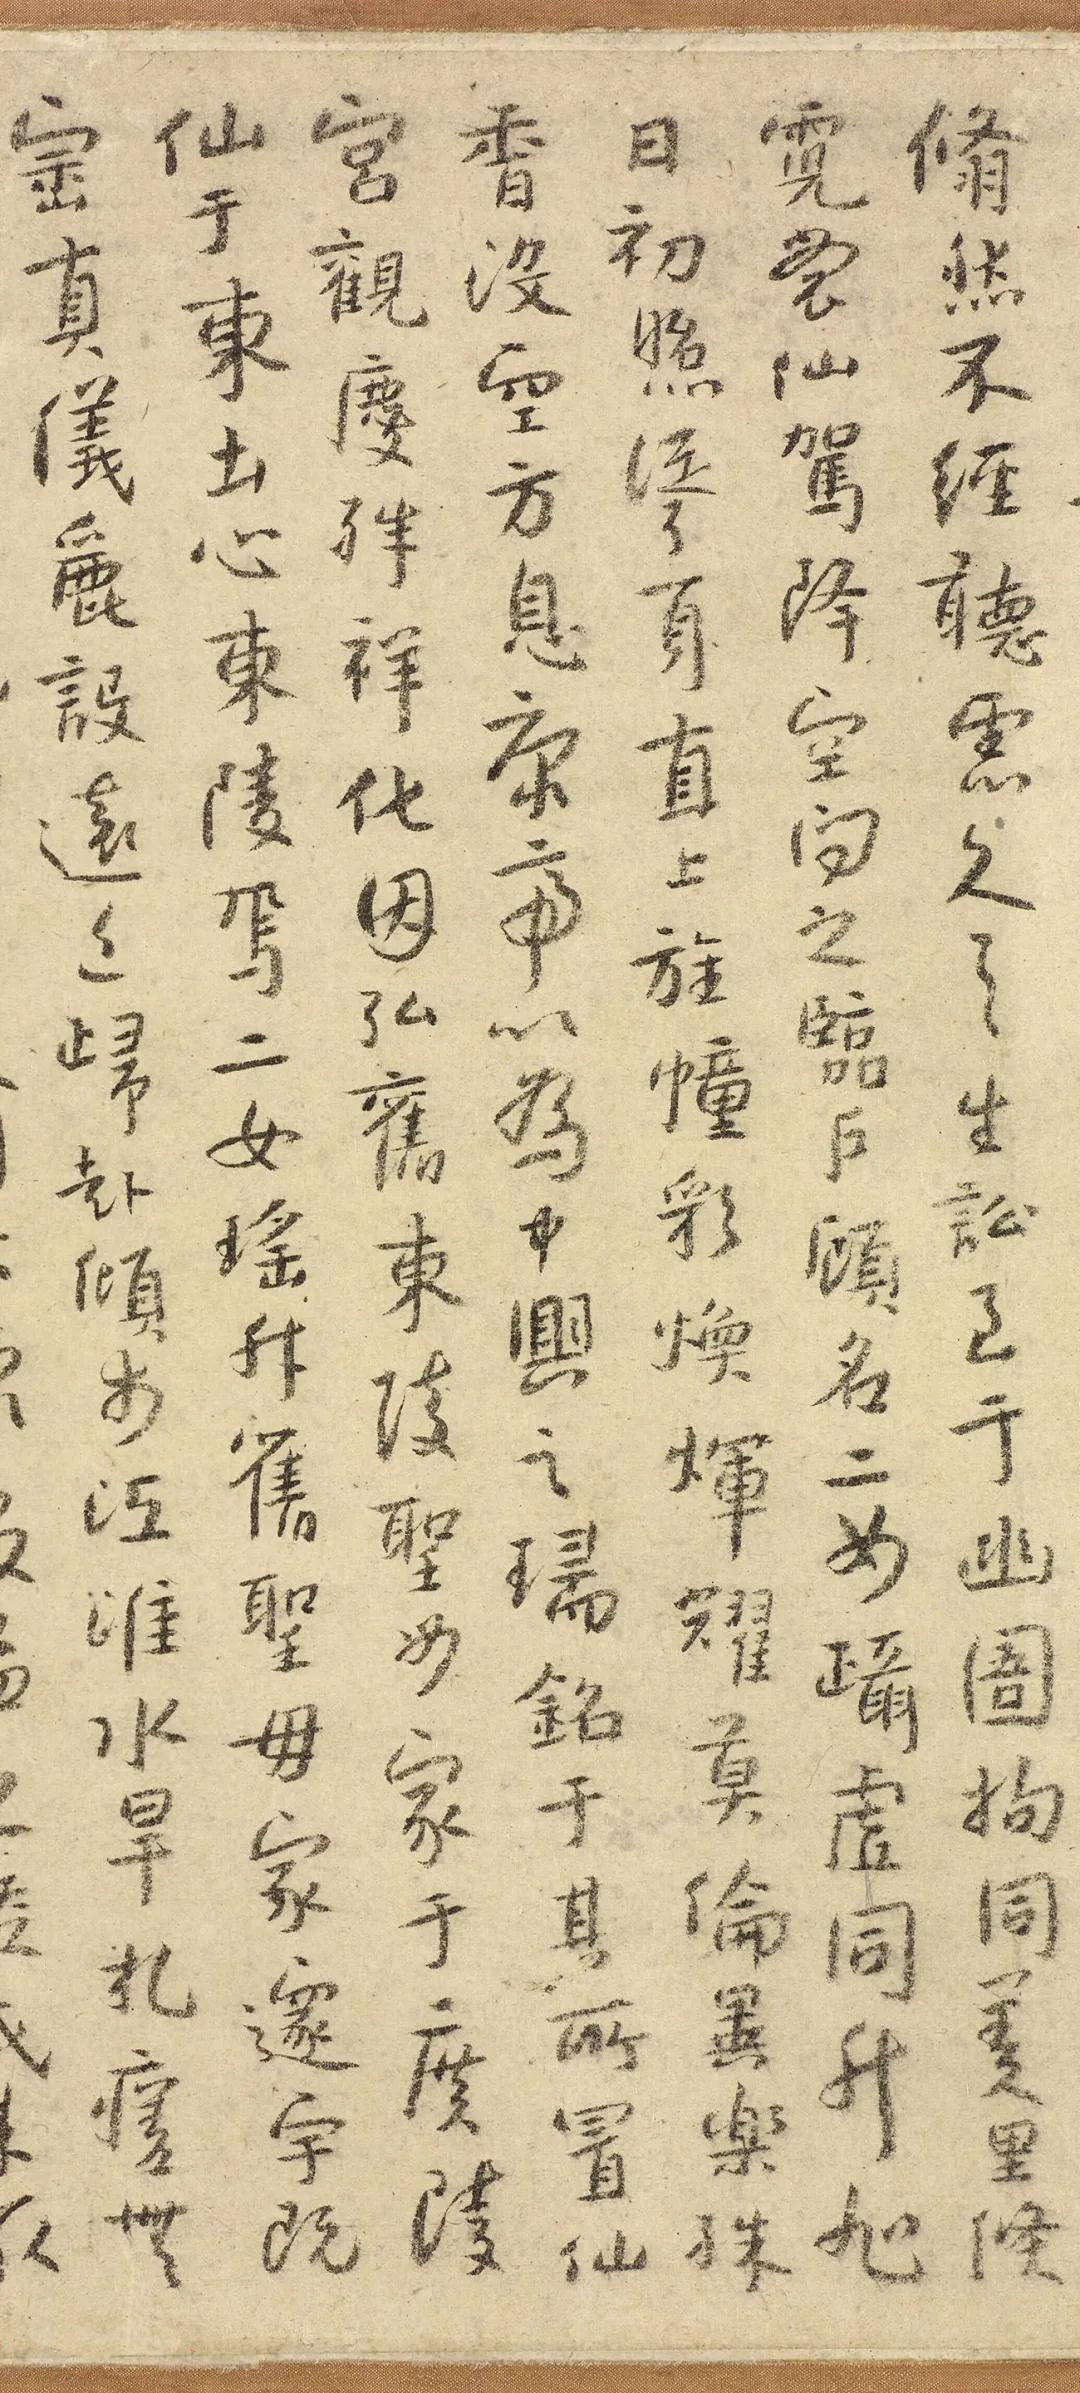 翛然不經聽憲久之生訟至于幽圄拘同羑里倏
霓裳仙駕降空問之臨戶顧名二女躡虛同升旭
日初照漻耳直上旌幢彩煥輝耀莫倫異樂殊
香沒空方息康帝以為中興之瑞銘于其所置仙
宮觀慶殊祥化因弘舊東陵聖母家于廣陵
仙于東土心東陵焉二女瑤升舊聖母家邃宇既
崇真儀麗設遠近歸赴傾市江淮水旱札瘥無